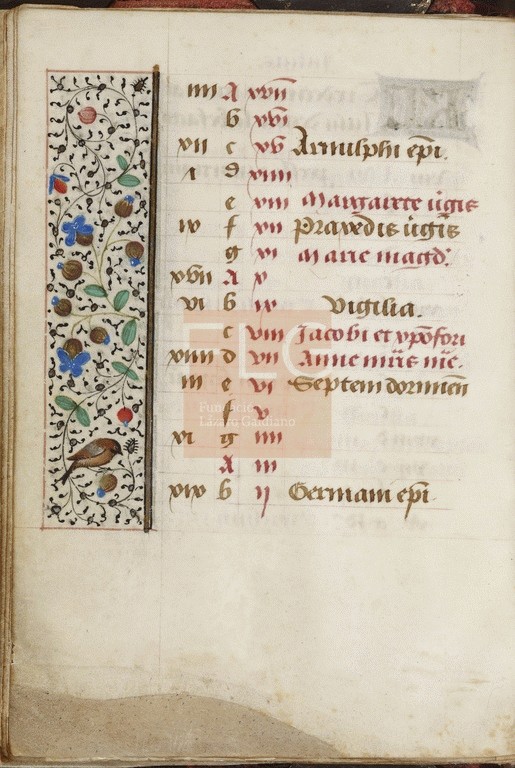 iiii A xvii
b xvi
xii c xv Arnulphi epi.
i d xiiii
e xiii Margarete v̄gīs
ix f xii Praxedis v̄gīs
g xi Marie magd'.
xvii A x
vi b ix Vigilia.
c viii Jacobi et xp̄ofori
xiiii d vii Anne mr̄is m̄e.
iii e vi Septem dormien̄
f v
xi g iiii
A iii
xix b ii Germani epi.
FLG
Fundación
Lázaro Galdiano